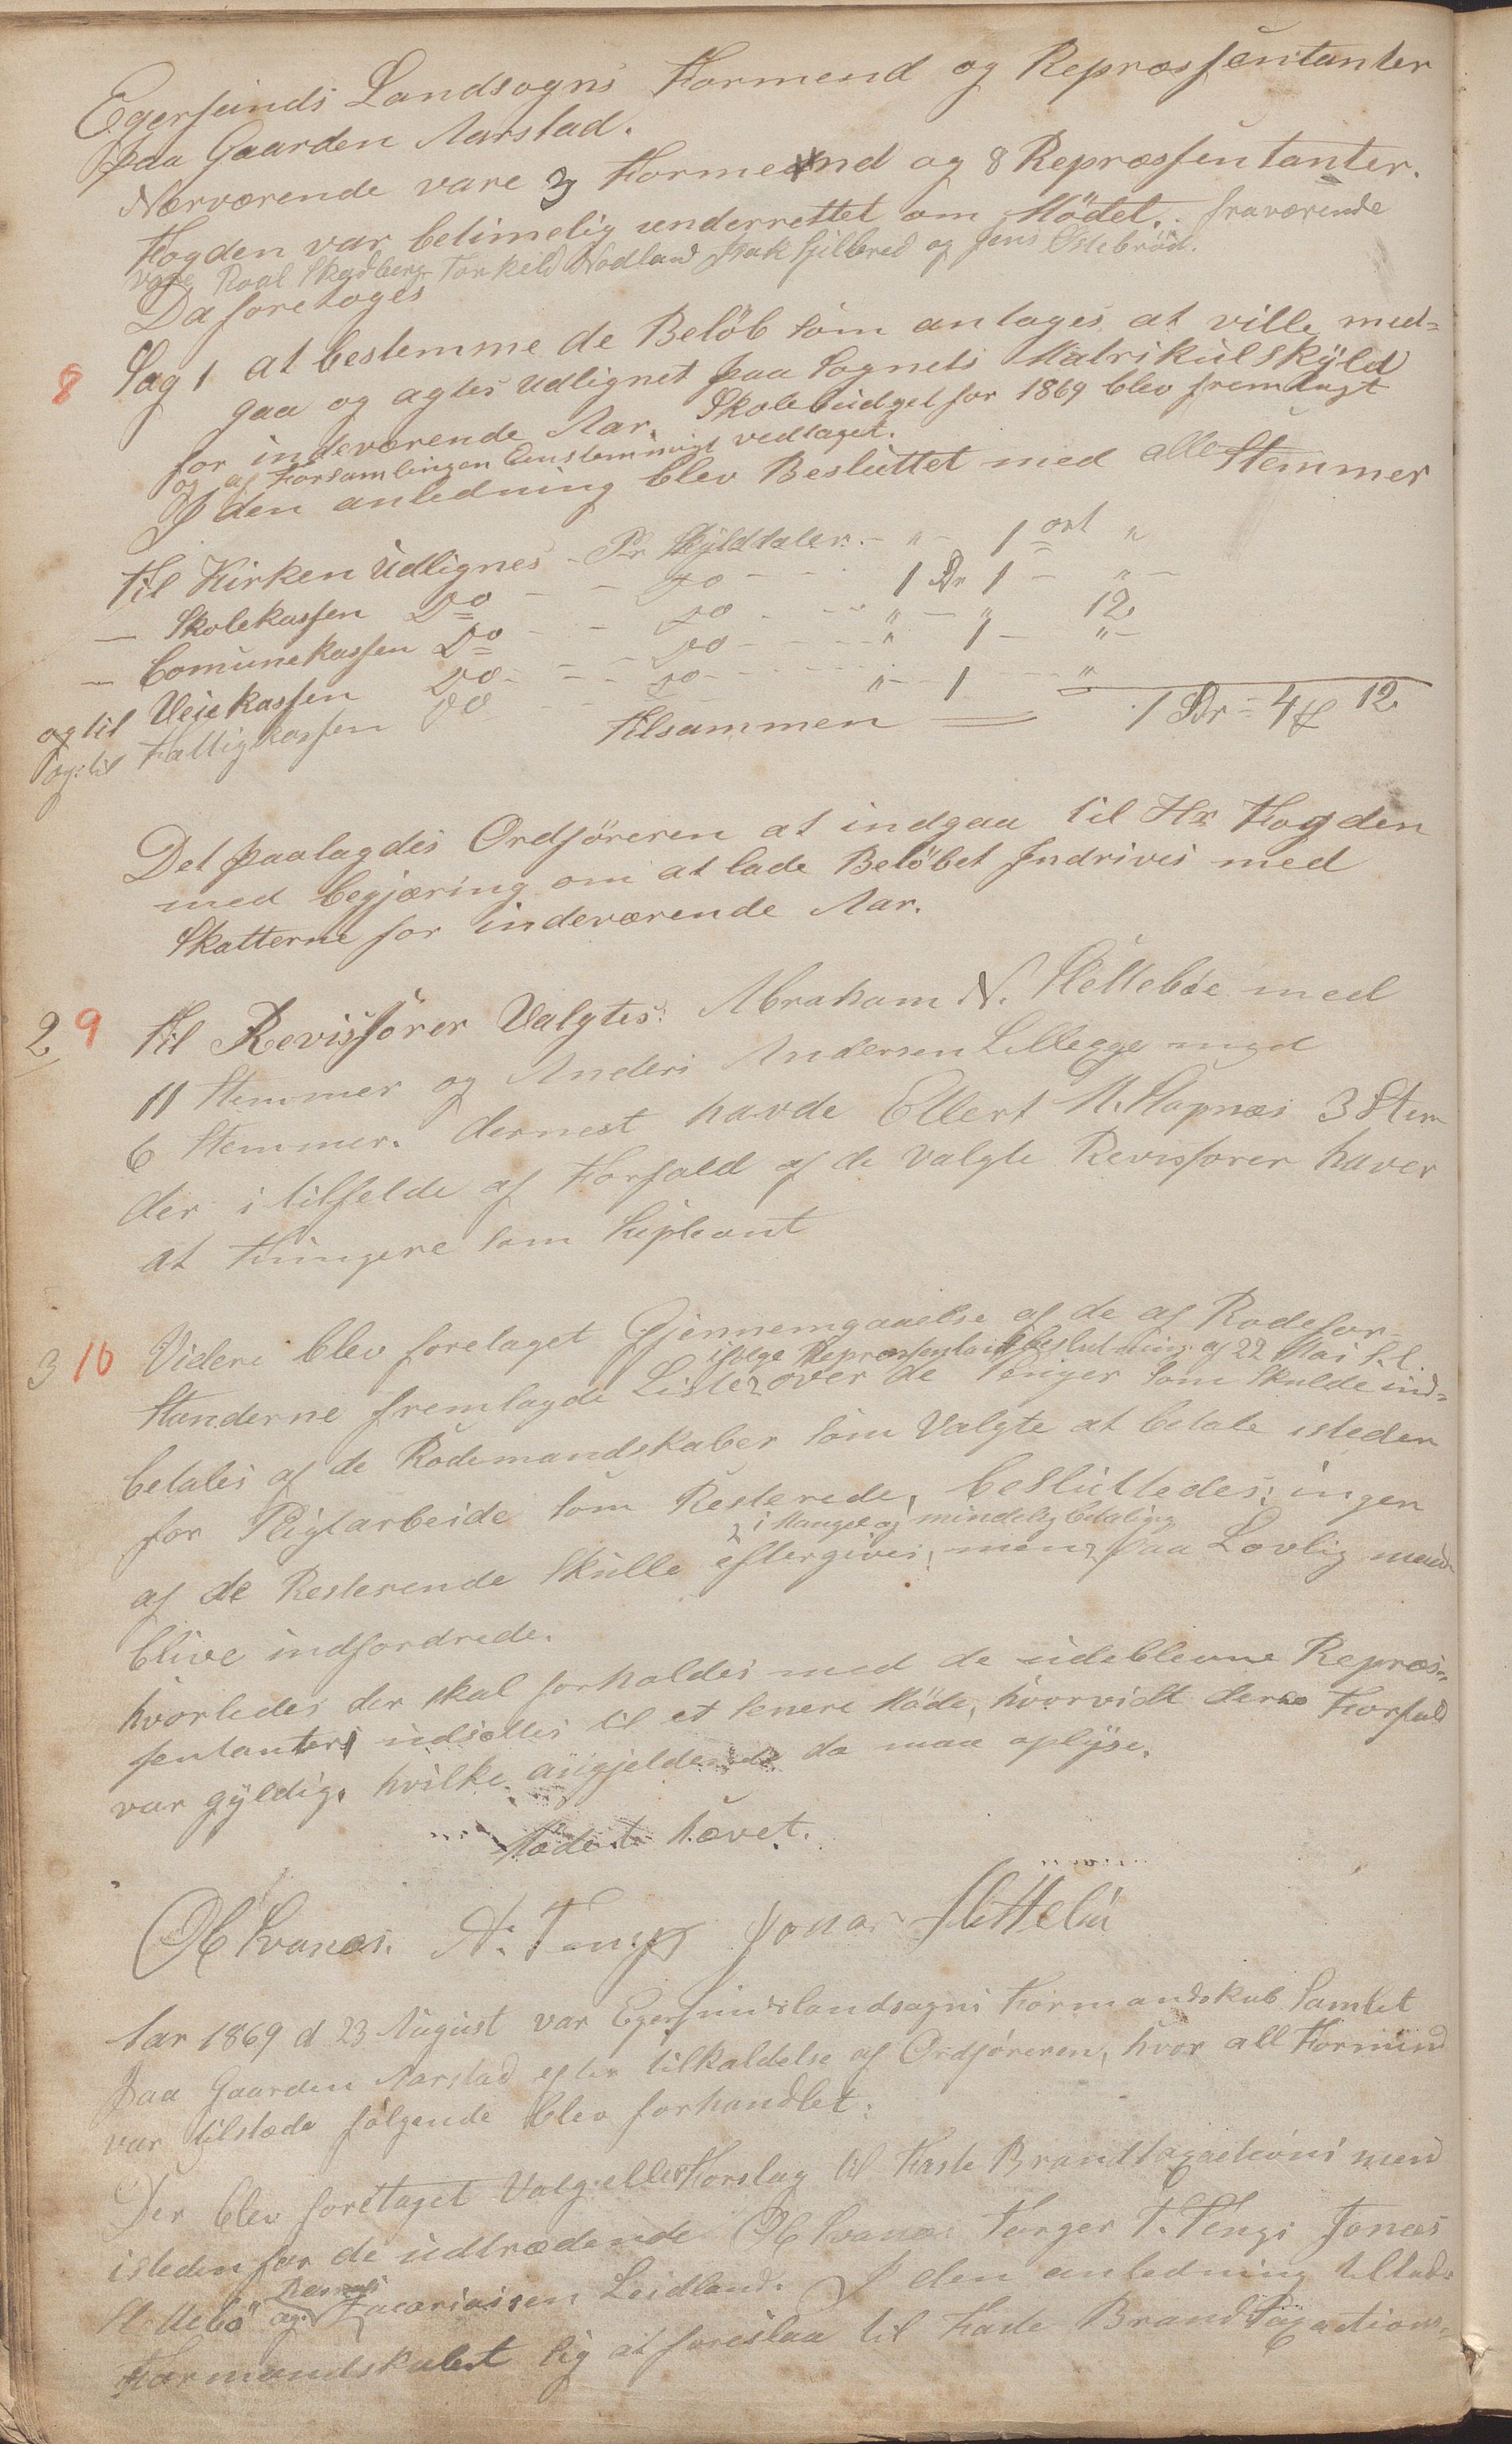 Egersunds Landsogns Formend og Repræssentanter
paa Gaarden Aarstad.
Nærværende vare 3 Formend og 8 Repræssentanter.
Fogden var betimelig underrettet om Mödet. fraværende
vare Roal Skadberg Torkild Nodland Isak Hilbred og Jens Østebröd.
Da foretoges
8 Sag 1 at bestemme de Belöb som antages at ville med-
gaa og agtes udlignet paa Sognets Matrikul Skÿld
for indeværende Aar. Skolebudget for 1869 blev fremlagt
og af Forsamlingen Eenstemmigt vedtaget.
I den anledning blev Besluttet med alle Stemmer
til Kirken Udlignes - Pr Skÿlddaler - " - 1 ort "
— Skolekassen Do - - Do - - 1 Dr 1 - " -
— Comunekassen Do - - Do - - " - " 12
og til Veiekassen Do - - Do - - " 1 - " -
og til Fattigkassen Do - - Do - - " - 1 - "
tilsammen = 1 Dr = 4 ℔ 12
Det paalagdes Ordföreren at indgaa til Hr Fogden
med begjæring om at lade Belöbet Indrives med
Skatterne for indeværende Aar.
2 9 til Revissorer Valgtes: Abraham N. Slettebøe med
11 Stemmer og Anders Andersen Lillegge med
6 Stemmer. dernest havde Ellert M. Slapnæs 3 Stem
der i tilfelde af Forfald af de valgte Revissorer haver
at Fungere som Supleant
3 10 Videre blev foretaget Gjennemgaaelse af de af Rodefor-
ifølge Repræssentantbeslutning af 22 Mai f. l.
standerne fremlagde Lister over de Penger som skulde ind-
betales af de Rodemandskaber som Valgte at betale isteden
for Pligtarbeide som Resterede, besluttedes: ingen
i Mangel af mindelig betaling
af de Resterende skulle eftergives, men paa Lovlig maade
blive indfordrede.
hvorledes der skal forholdes med de udeblevne Repræs-
sentanter udsættes til et senere Möde, hvorvidt deres Forfald
var gyldig. hvilke angjeldende da maa oplÿse.
Mödet hævet.
O Svanæs. N. Tengs Jonas Slettebö
Aar 1869 d 23 August var Egersundslandsogns Formandskab Samlet
paa Gaarden Aarstad efter tilkaldelse af Ordföreren, hvor all Formend
var tilstæde følgende blev forhandlet:
Der blev foretaget Valg eller Forslag til Faste Brandtaxations mend
isteden for de udtrædende O Svanæs Torger T. Tengs Jonas
Slettebö og Rasmus Zacariassen Leidland. I den anledning tillod
Formandskabet sig at foreslaa til Faste Brand Taxations-